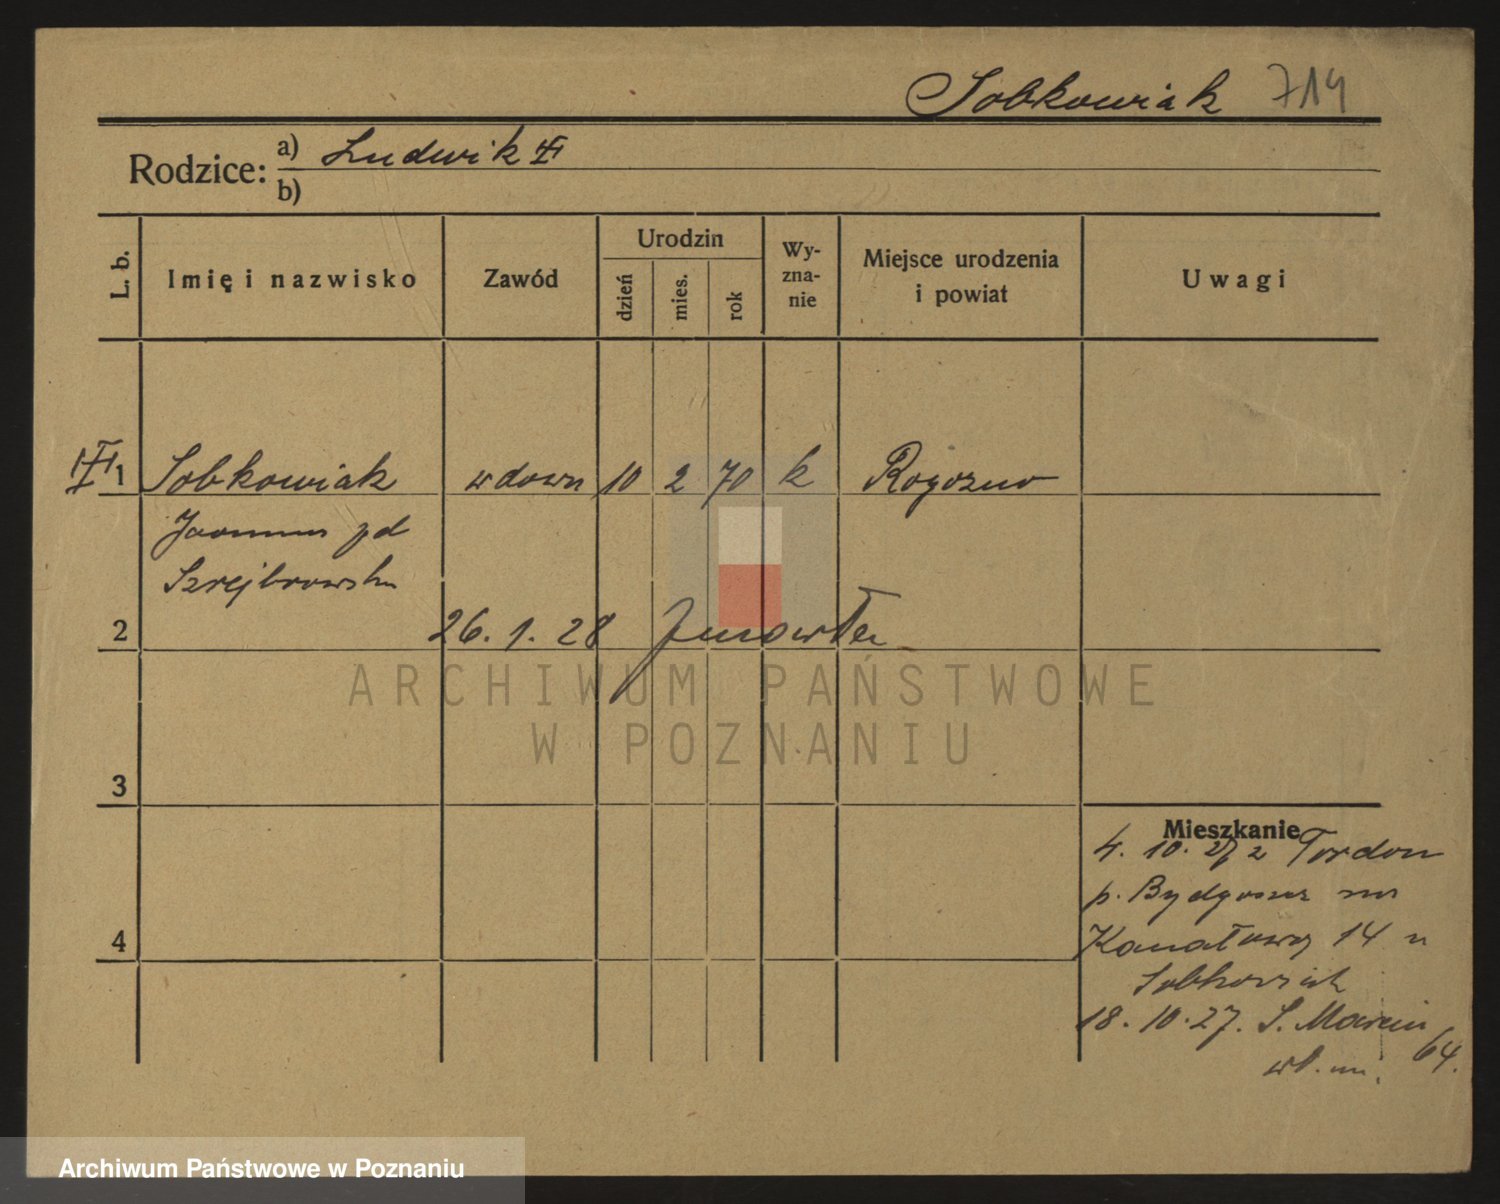 Sobkowiak 714
Rodzice: a) Ludwik
b)
L. b.
Imię i nazwisko
Zawód
Urodzin
dzień
mies.
rok
Wy-
zna-
nie
Miejsce urodzenia
i powiat
Uwagi
1 Sobkowiak wdowa 10 2 70 k Rogoźno
Szrejbrowska
2 26. 1. 28 zmarła
3
4
Mieszkanie
4. 10. 27 z Fordon
p. Bydgoszcz
Kanałowa 14 u
Sobkowiak
18. 10. 27. S. Marcin 64.
ARCHIWUM PAŃSTWOWE
W POZNANIU
Archiwum Państwowe w Poznaniu